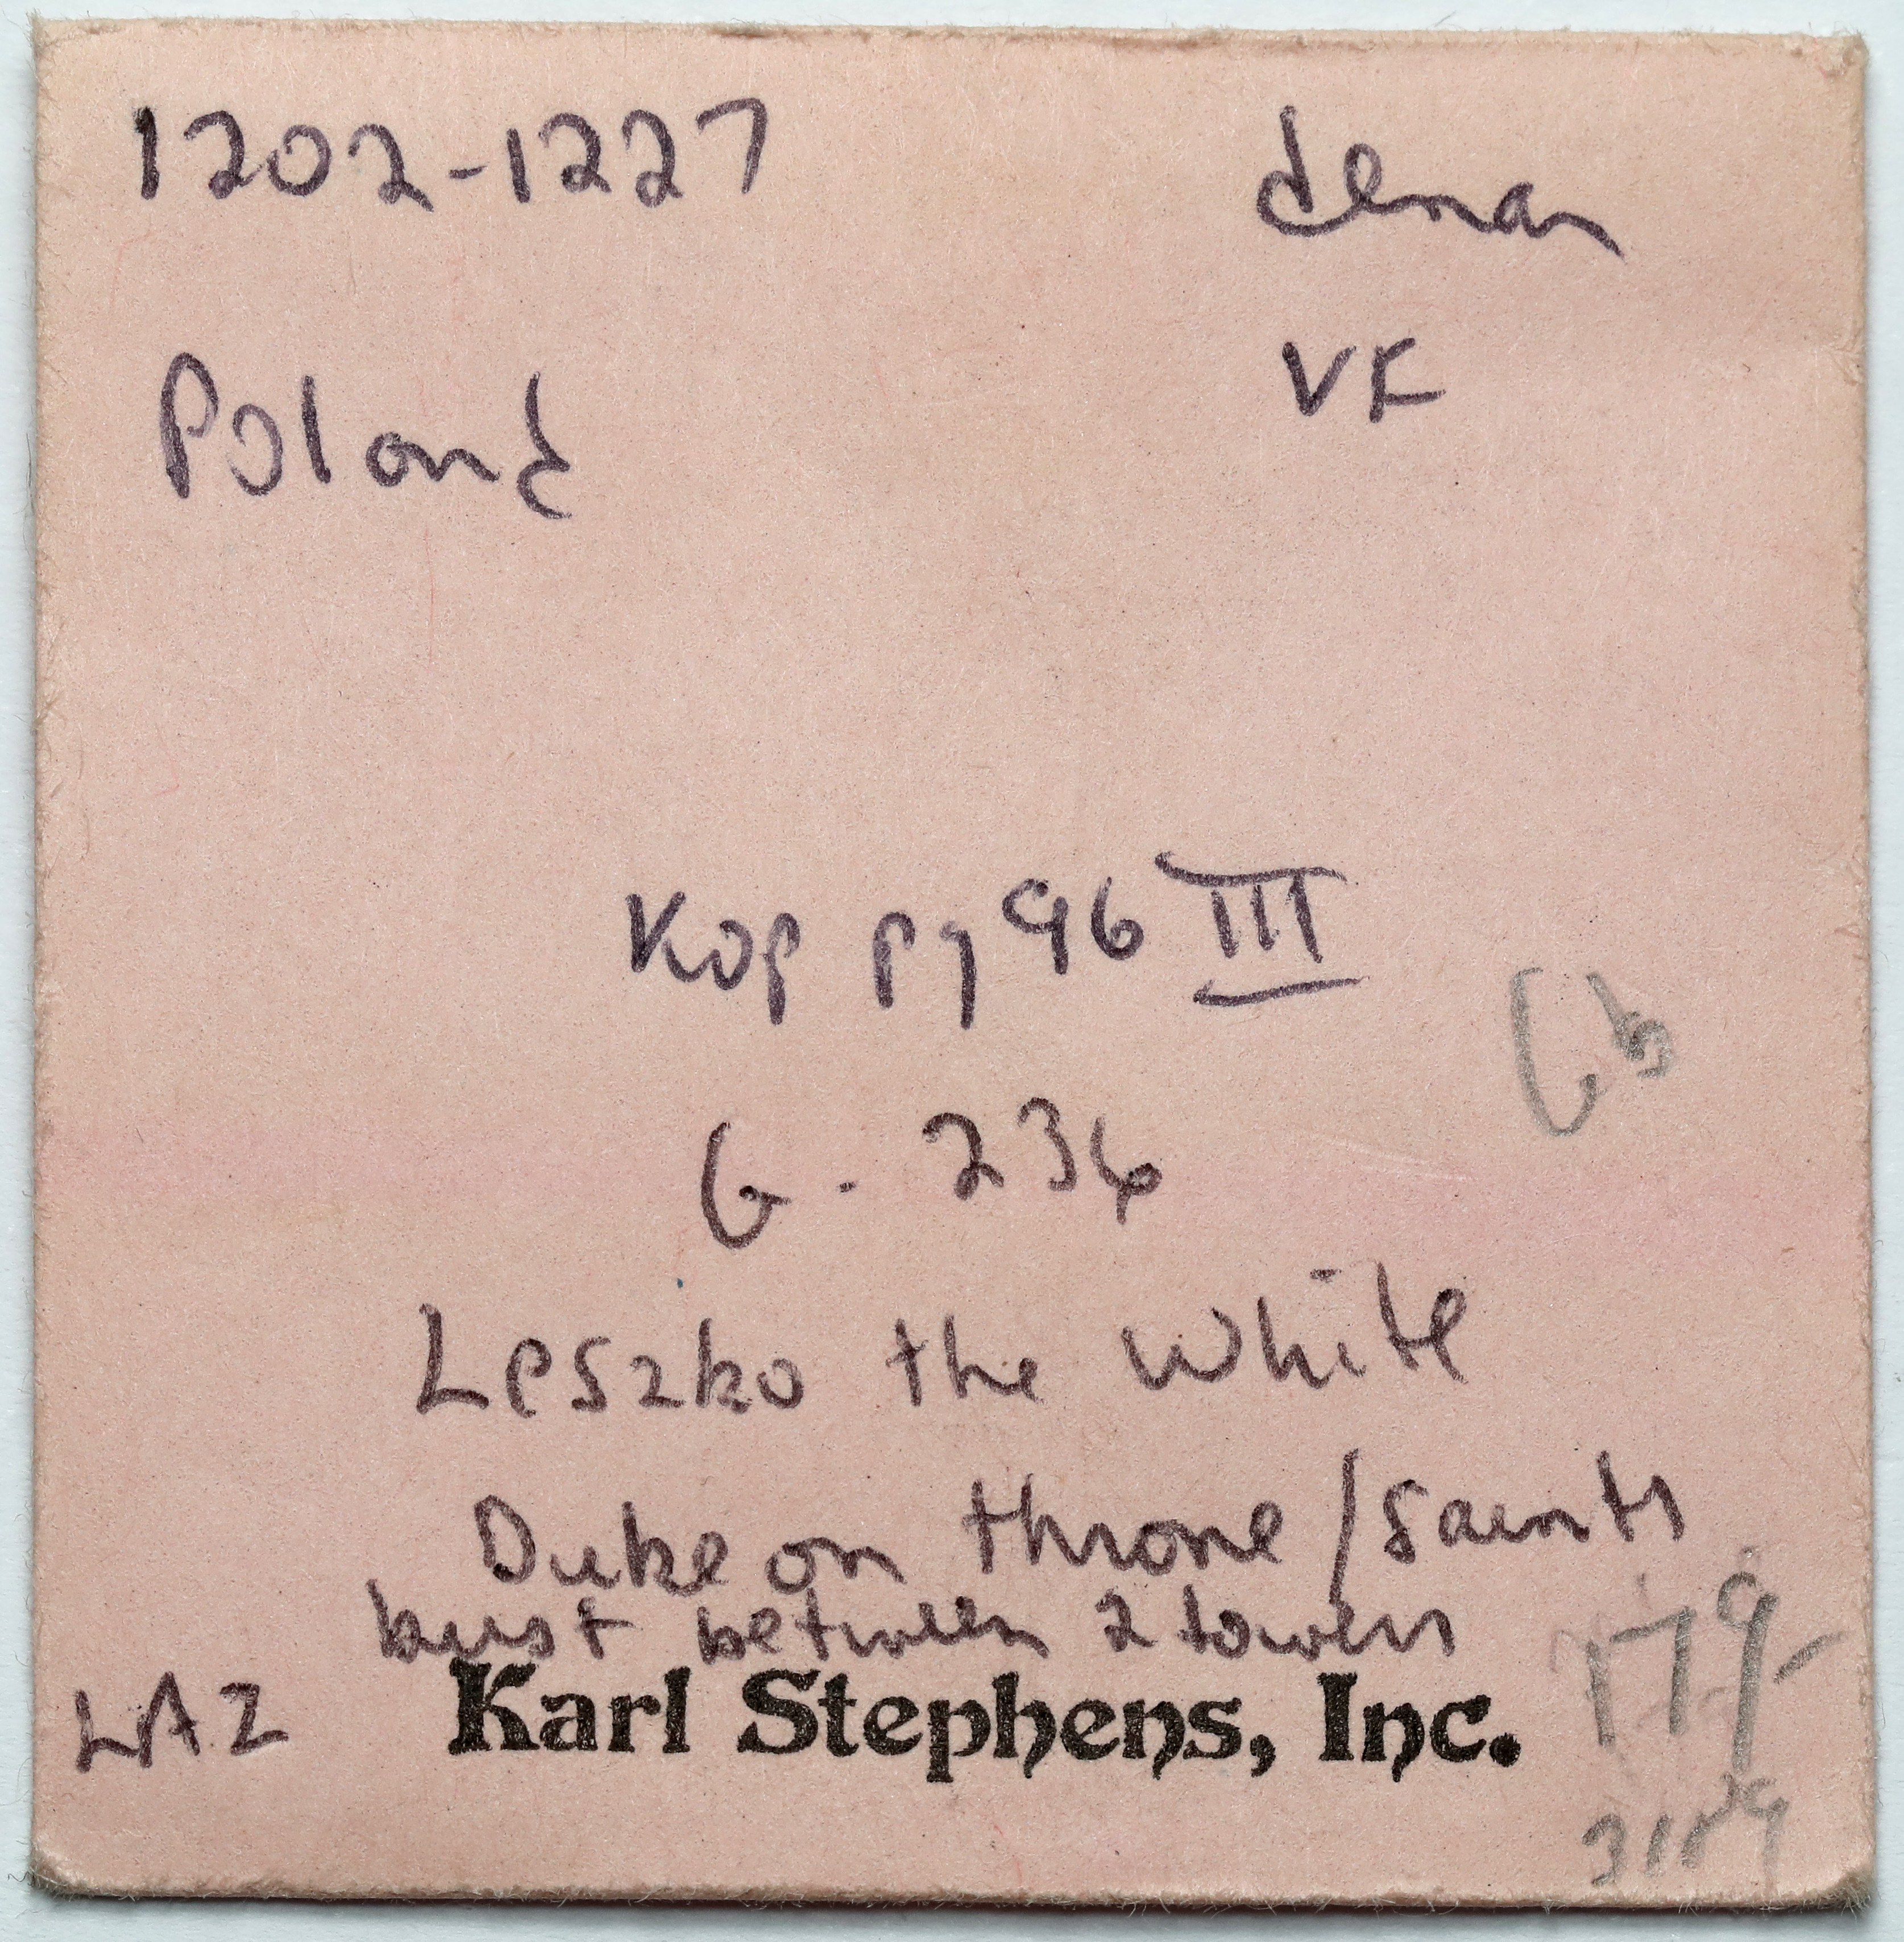 1202-1227 denar
Poland VF
Kop pg 96 III
Gb
G - 236
Leszko the White
Duke on throne / Saints
bust between 2 towers
LAZ Karl Stephens, Inc. 179-